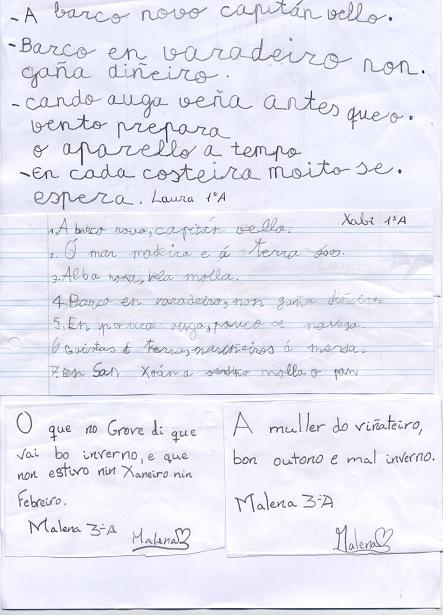 -A barco novo capitán vello.
-Barco en varadeiro non.
gaña diñeiro.
-cando auga veña antes que o.
vento prepara
o aparello a tempo
-En cada costeira moito se.
espera. Laura 1ºA
Xabi 1ºA
1. A barco novo, capitán vello.
2. Ó mar madeira e á terra ósos.
3. Alba roxa, vela molla.
4. Barco en varadeiro, non gaña diñeiro
5. En pouca auga, pouco se navega
6. Gaivotas á terra, mariñeiros á merda.
7. En San Xoán a sardiña molla o pan
O que no Grove di que
vai bo inverno, e que
non estivo nin Xaneiro nin
Febreiro.
Malena 3ºA
Malena
A muller do viñateiro,
bon outono e mal inverno.
Malena 3ºA
Malena